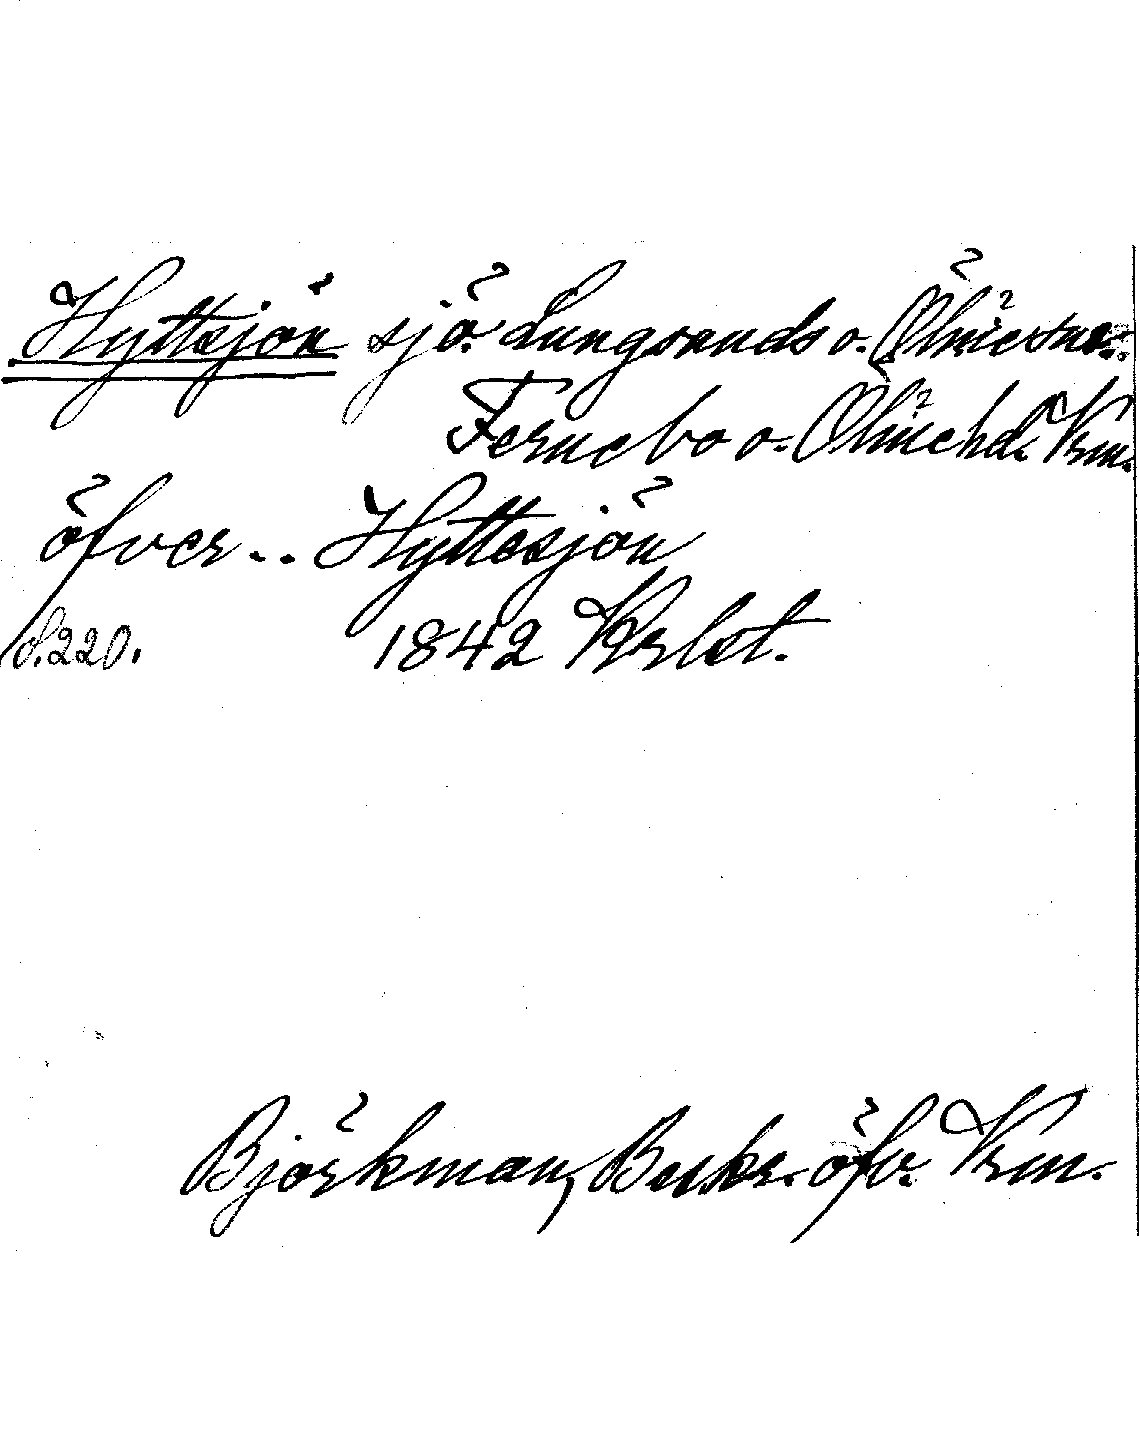 Hyttsjön sjö. Lungsunds o. Ölmesnr..
Fernebo o. Ölmehd. Vrm.
öfver.. Hyttesjön
S.220. 1842 Krlst.
Björkman, Beskr. öfv. Vrm.